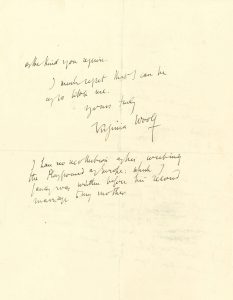 behind you again.
I much regret that I can be
of so little use.
yours truly
Virginia Woolf
I have no recollection of his writing
the Playground of Europe: which
I fancy was written before his second
marriage to my mother